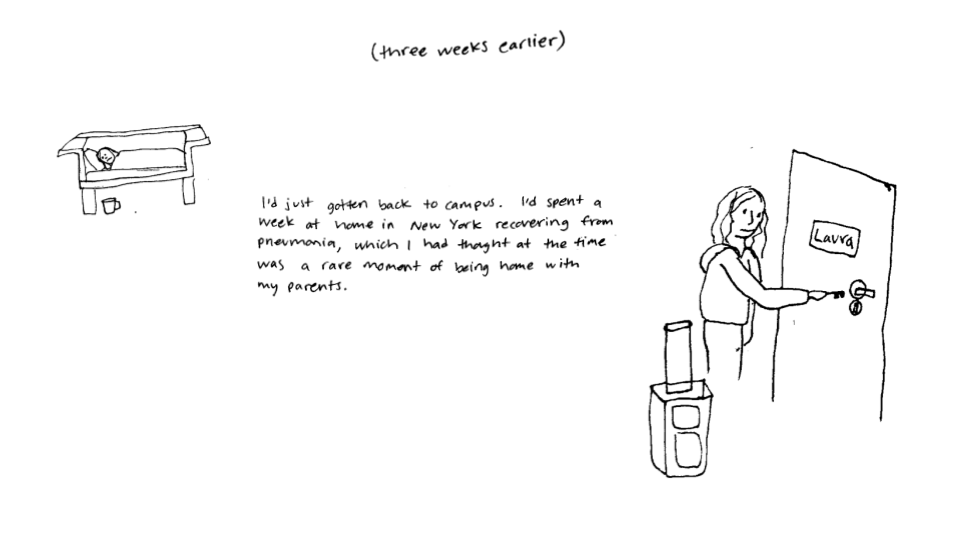 (three weeks earlier)
I'd just gotten back to campus. I'd spent a
week at home in New York recovering from
pneumonia, which I had thought at the time
was a rare moment of being home with
my parents.
Laura